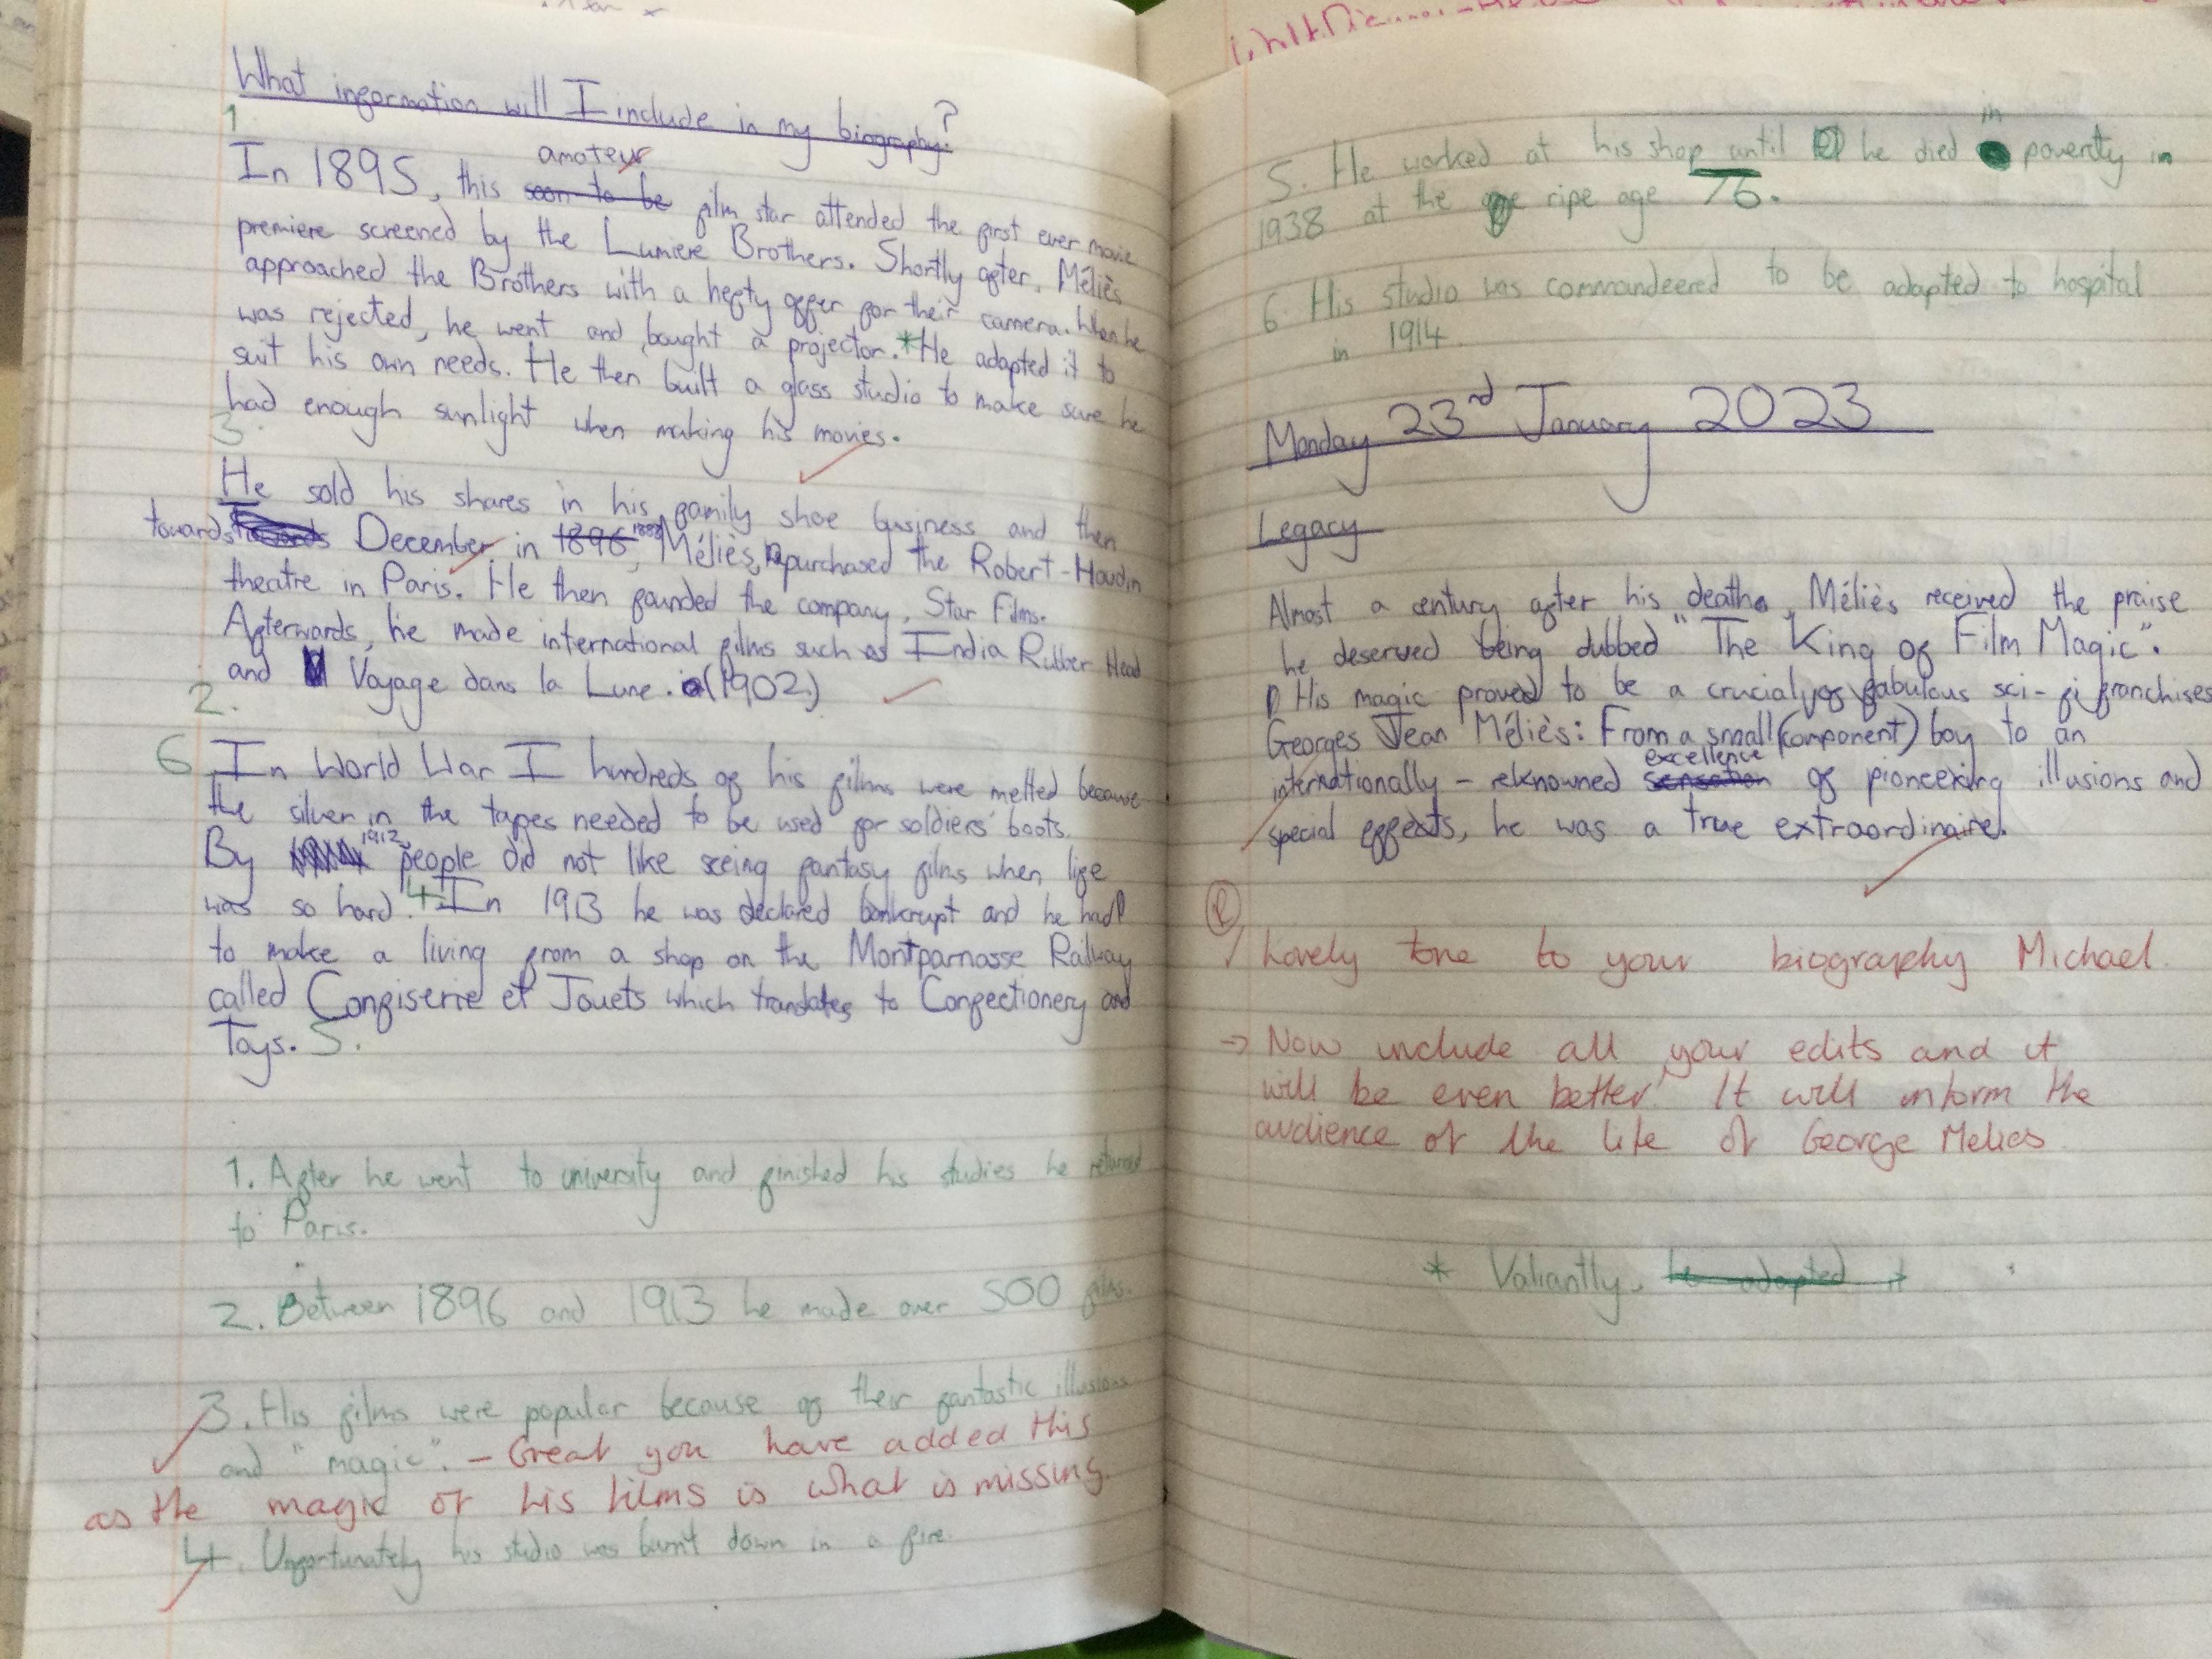 What information will I include in my biography?
1
amateur
In 1895, this soon to be film star attended the first ever movie
premiere screened by the Lumiere Brothers. Shortly after, Méliès
approached the Brothers with a hefty offer for their camera. When he
was rejected, he went and bought a projector.*He adapted it to
suit his own needs. He then built a glass studio to make sure he
had enough sunlight when making his movies.
3.
He sold his shares in his family shoe business and then
towards December in 1896, 1888 Méliès, purchased the Robert-Houdin
theatre in Paris. He then founded the company, Star Films.
Afterwards, he made international films such as India Rubber Head
and Voyage dans la Lune. (1902)
2.
6 In World War I hundreds of his films were melted because
the silver in the tapes needed to be used for soldiers' boots.
By 1912, people did not like seeing fantasy films when life
was so hard. 4. In 1913 he was declared bankrupt and he had
to make a living from a shop on the Montparnasse Railway
called Confiserie et Jouets which translates to Confectionery and
Toys. 5.
1. After he went to university and finished his studies he returned
to Paris.
2. Between 1896 and 1913 he made over 500 films.
3. His films were popular because of their fantastic illusions
and "magic". - Great you have added this
as the magic of his films is what is missing.
4. Unfortunately his studio was burnt down in a fire.
in
5. He worked at his shop until he died poverty in
1938 at the ripe age 76.
6. His studio was commandeered to be adapted to hospital
in 1914.
Monday 23rd January 2023
Legacy
Almost a century after his death, Méliès received the praise
he deserved being dubbed "The King of Film Magic".
His magic proved to be a crucial of fabulous sci-fi franchises
Georges Jean Méliès: From a small (component) boy to an
excellence
internationally - reknowned sensation of pioneering illusions and
special effects, he was a true extraordinaire.
Lovely tone to your biography Michael.
→ Now include all your edits and it
will be even better! It will inform the
audience of the life of George Melies
* Valiantly, he adapted it